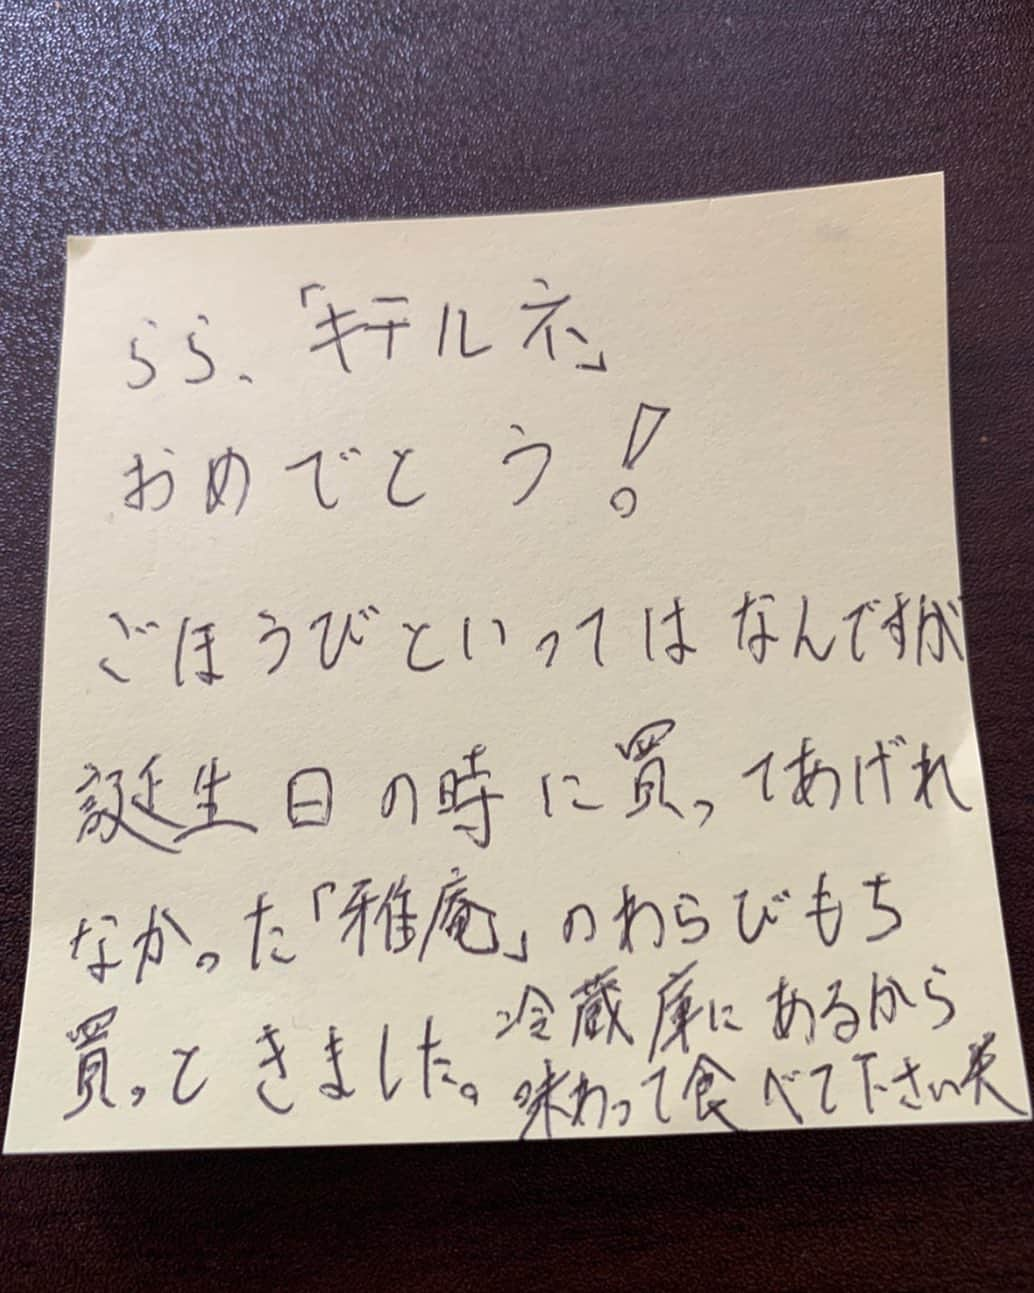 らら、「キテルネ」
おめでとう!
ごほうびといってはなんですが
誕生日の時に買ってあげれ
なかった「雅庵」のわらびもち
買っときました。
冷蔵庫にあるから
味わって食べて下さい笑